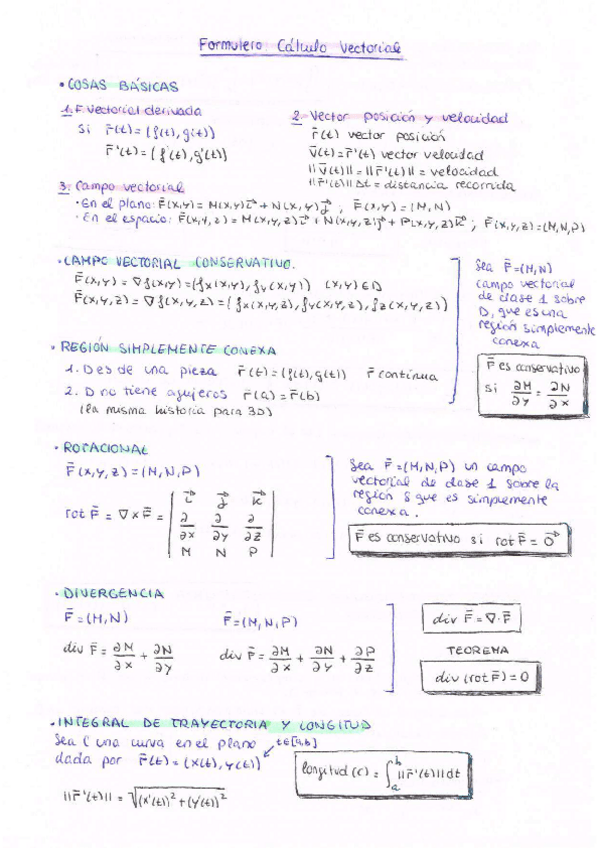 Formulero Cálculo Vectorial
• COSAS BÁSICAS
1. F. Vectorial derivada
Si r̄(t) = (f(t), g(t))
r̄'(t) = (f'(t), g'(t))
2. Vector posición y velocidad
r̄(t) vector posición
v̄(t) = r̄'(t) vector velocidad
||v̄(t)|| = ||r̄'(t)|| = velocidad
||r̄'(t)|| Δt = distancia recorrida
3. Campo vectorial
• En el plano: F̄(x,y) = M(x,y)i⃗ + N(x,y)j⃗ ; F̄(x,y) = (M,N)
• En el espacio: F̄(x,y,z) = M(x,y,z)i⃗ + N(x,y,z)j⃗ + P(x,y,z)k⃗ ; F̄(x,y,z) = (M,N,P)
• CAMPO VECTORIAL CONSERVATIVO.
F̄(x,y) = ∇f(x,y) = (fx(x,y), fy(x,y)) (x,y) ∈ D
F̄(x,y,z) = ∇f(x,y,z) = (fx(x,y,z), fy(x,y,z), fz(x,y,z))
• REGIÓN SIMPLEMENTE CONEXA
1. D es de una pieza r̄(t) = (f(t), g(t)) r̄ continua
2. D no tiene agujeros r̄(a) = r̄(b)
(la misma historia para 3D)
Sea F̄ = (M,N)
campo vectorial
de clase 1 sobre
D, que es una
región simplemente
conexa
F̄ es conservativo
si ∂M/∂y = ∂N/∂x
• ROTACIONAL
F̄(x,y,z) = (M,N,P)
rot F̄ = ∇ x F̄ = | i⃗ j⃗ k⃗ |
| ∂/∂x ∂/∂y ∂/∂z |
| M N P |
Sea F̄ = (M,N,P) un campo
vectorial de clase 1 sobre la
región S que es simplemente
conexa.
F̄ es conservativo si rot F̄ = 0⃗
• DIVERGENCIA
F̄ = (M,N)
div F̄ = ∂M/∂x + ∂N/∂y
F̄ = (M,N,P)
div F̄ = ∂M/∂x + ∂N/∂y + ∂P/∂z
div F̄ = ∇·F̄
TEOREMA
div (rot F̄) = 0
• INTEGRAL DE TRAYECTORIA Y LONGITUD
Sea C una curva en el plano t∈[a,b]
dada por r̄(t) = (x(t), y(t))
||r̄'(t)|| = √((x'(t))² + (y'(t))²)
longitud (C) = ∫ₐᵇ ||r̄'(t)|| dt